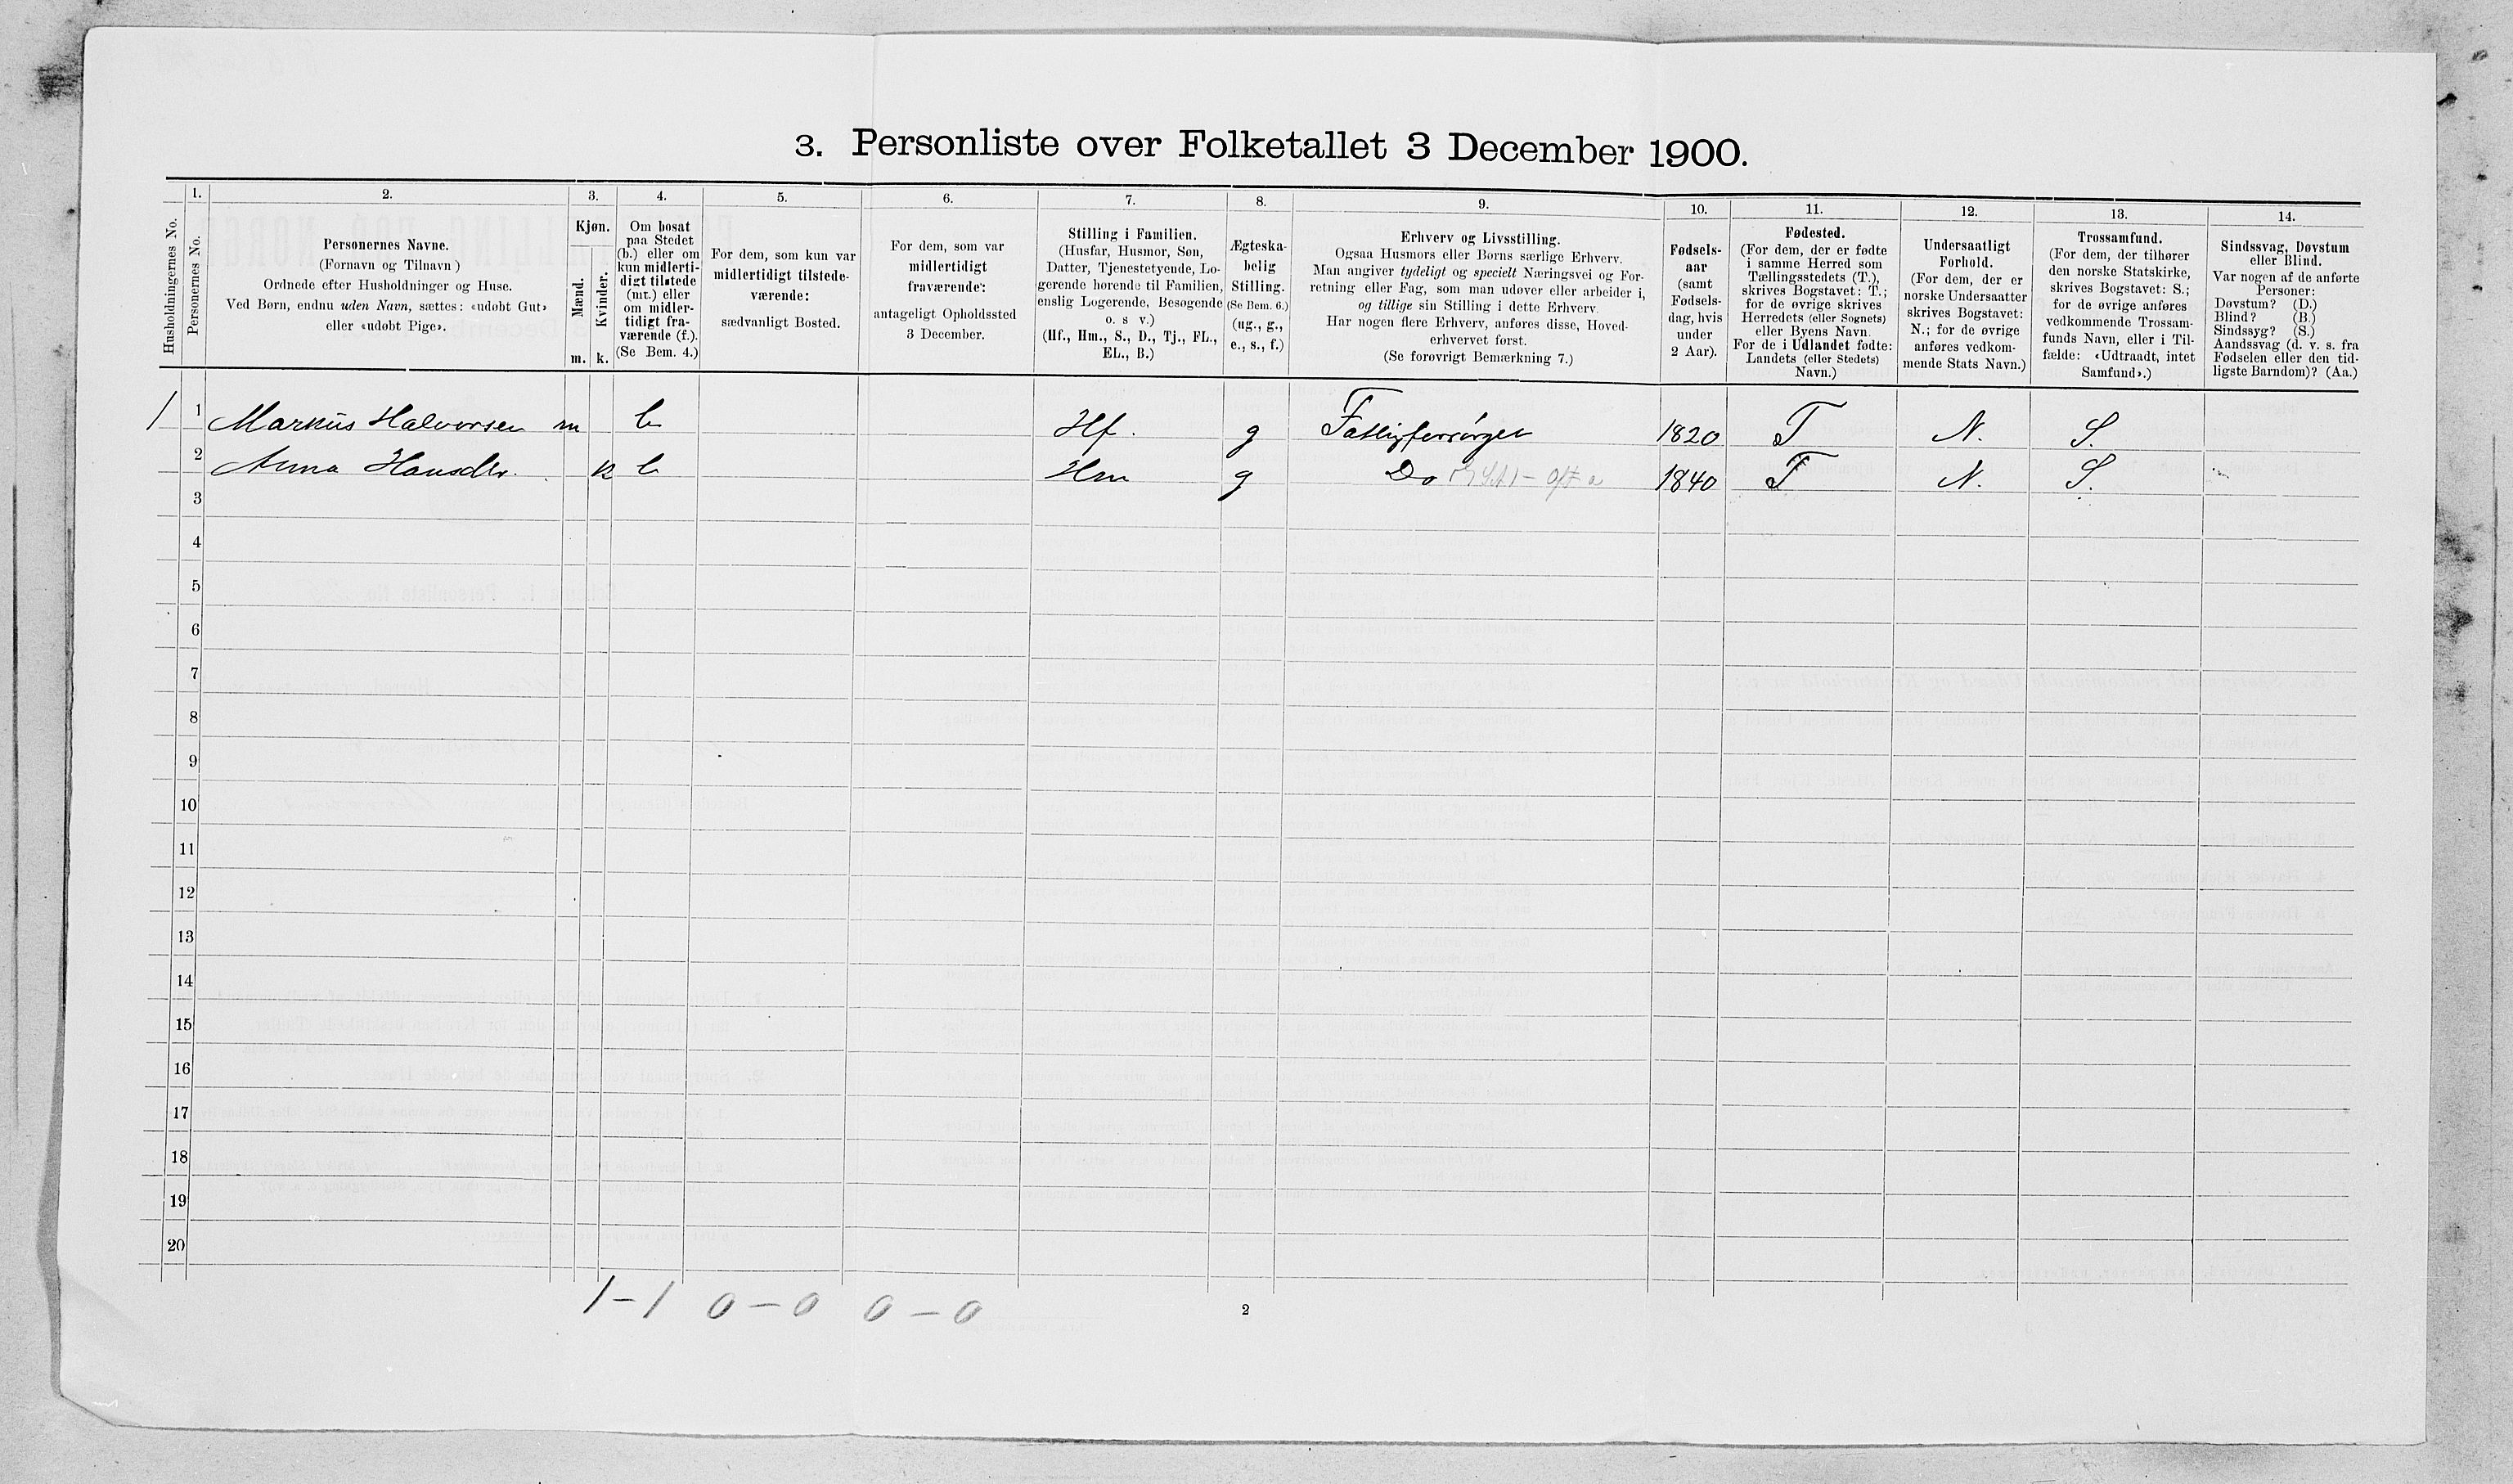 3. Personliste over Folketallet 3 December 1900.
Husholdningernes No.
1.
Personernes No.
2.
Personernes Navne.
(Fornavn og Tilnavn )
Ordnede efter Husholdninger og Huse.
Ved Børn, endnu uden Navn, sættes: «udøbt Gut»
eller «udøbt Pige».
3.
Kjøn.
Mænd.
Kvinder.
m.
k.
4.
Om bosat
paa Stedet
(b.) eller om
kun midlerti-
digt tilstede
(mt.) eller
om midler-
tidigt fra-
værende (f.).
(Se Bem. 4.)
5.
For dem, som kun var
midlertidigt tilstede-
værende:
sædvanligt Bosted.
6.
For dem, som var
midlertidigt
fraværende:
antageligt Opholdssted
3 December.
7.
Stilling i Familien.
(Husfar, Husmor, Søn,
Datter, Tjenestetyende, Lo-
gerende hørende til Familien,
enslig Logerende, Besøgende
o. s v.)
(Hf., Hm., S., D., Tj., FL.,
EL., B.)
8.
Ægteska-
belig
Stilling.
(Se Bem. 6.)
(ug., g.,
e., s., f.)
9.
Erhverv og Livsstilling.
Ogsaa Husmors eller Børns særlige Erhverv.
Man angiver tydeligt og specielt Næringsvei og For-
retning eller Fag, som man udøver eller arbeider i,
og tillige sin Stilling i dette Erhverv.
Har nogen flere Erhverv, anføres disse, Hoved-
erhvervet først.
(Se forøvrigt Bemærkning 7.)
10.
Fødsels-
aar
(samt
Fødsels-
dag, hvis
under
2 Aar).
11.
Fødested.
(For dem, der er fødte
i samme Herred som
Tællingsstedets (T.),
skrives Bogstavet: T.;
for de øvrige skrives
Herredets (eller Sognets)
eller Byens Navn.
For de i Udlandet fødte:
Landets (eller Stedets)
Navn.)
12.
Undersaatligt
Forhold.
(For dem, der er
norske Undersaatter
skrives Bogstavet:
N.; for de øvrige
anføres vedkom-
mende Stats Navn.)
13.
Trossamfund.
(For dem, der tilhører
den norske Statskirke,
skrives Bogstavet: S.;
for de øvrige anføres
vedkommende Trossam-
funds Navn, eller i Til-
fælde: «Udtraadt, intet
Samfund».)
14.
Sindssvag, Døvstum
eller Blind.
Var nogen af de anførte
Personer:
Døvstum? (D.)
Blind? (B.)
Sindssyg? (S.)
Aandssvag (d. v. s. fra
Fødselen eller den tid-
ligste Barndom)? (Aa.)
1 1 Markus Halvorsen m b Hf. g Fattigforsørget 1820 T N. S.
2 Anna Hansdtr. k b Hm g Do 1840 T N. S.
3
4
5
6
7
8
9
10
11
12
13
14
15
16
17
18
19
20
1 - 1 0 - 0 0 - 0
2